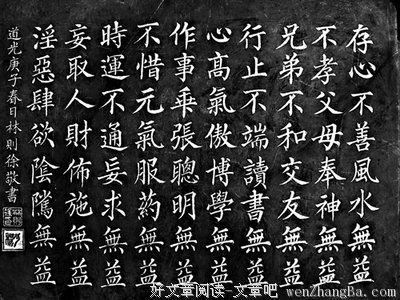 存心不善風水無益
不孝父母奉神無益
兄弟不和交友無益
行止不端讀書無益
心髙氣傲博學無益
作事乖張聰明無益
不惜元氣服葯無益
時運不通妄求無益
妄取人財佈施無益
淫惡肆欲陰隲無益
道光庚子春日林則徐敬書
好文章阅读-文章吧 wenZhangBa.com